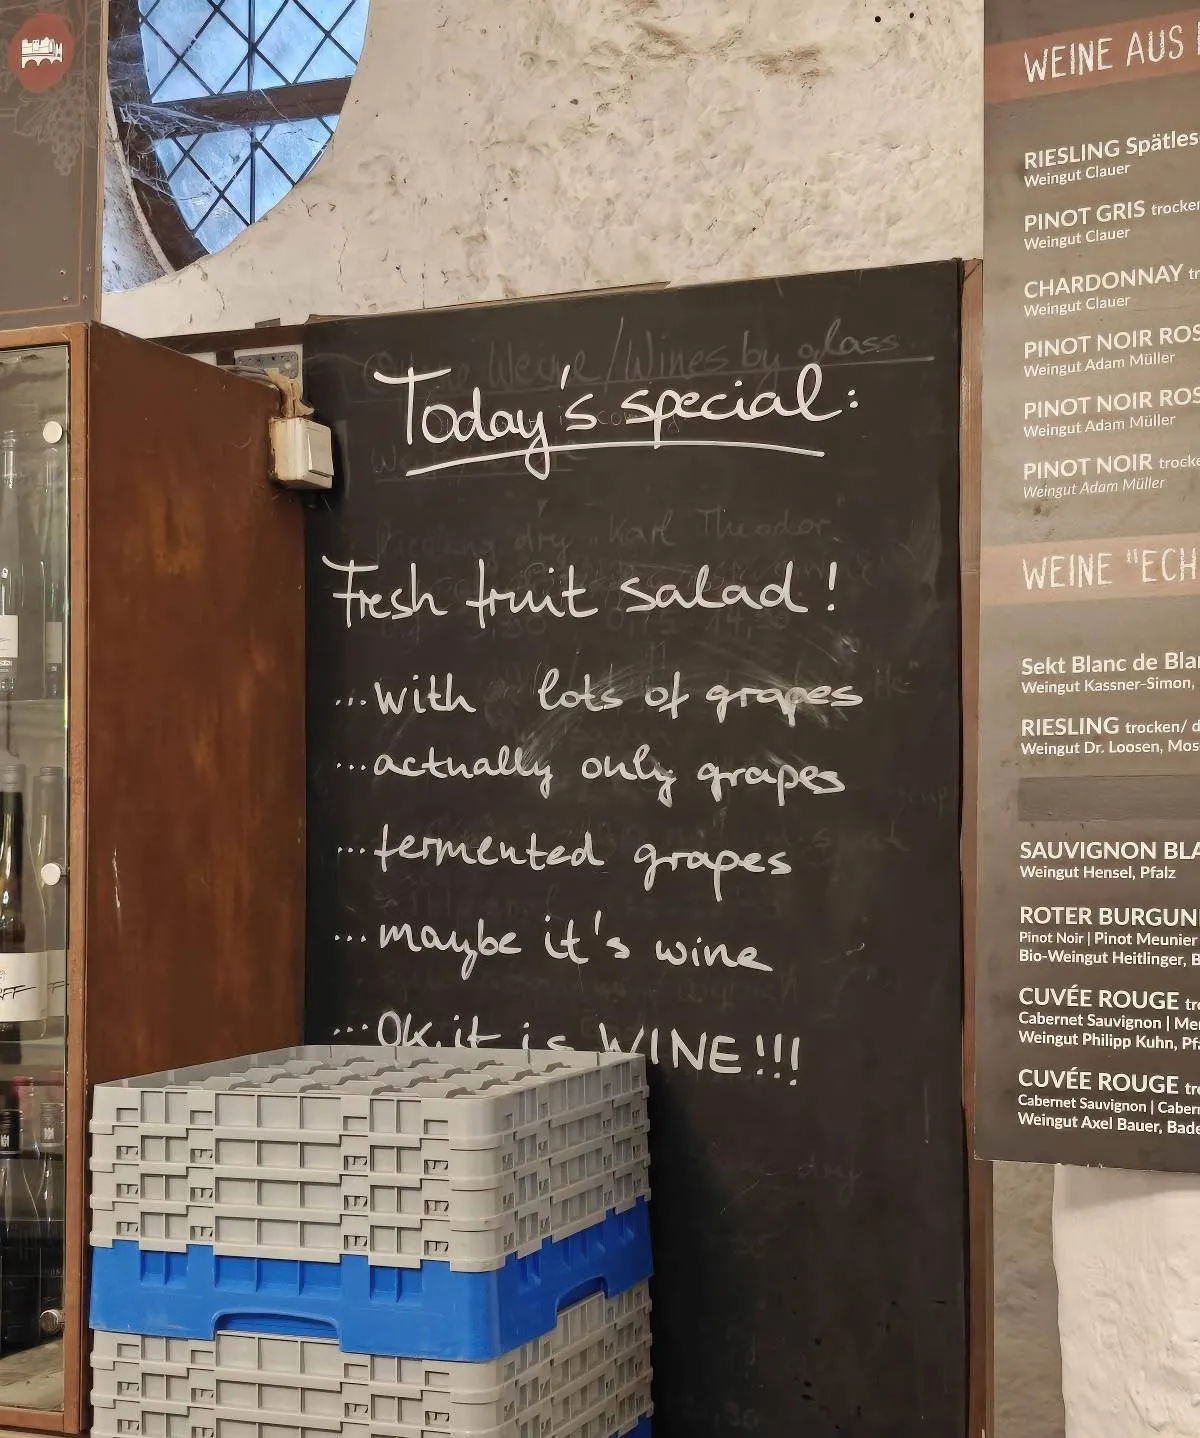 Today's special:
Fresh fruit salad!
...with lots of grapes
...actually only grapes
...fermented grapes
...maybe it's wine
...Ok, it is WINE!!!
Weine/Wines by glass
Riesling dry "Karl Theodor"
dry
WEINE AUS
RIESLING
Weingut Clauer
PINOT GRIS
Weingut Clauer
CHARDONNAY
Weingut Clauer
PINOT NOIR
Weingut Adam Müller
PINOT NOIR
Weingut Adam Müller
PINOT NOIR
Weingut Adam Müller
WEINE "ECH
Sekt Blanc de
Weingut Kassner-Simon,
RIESLING trocken/
Weingut Dr. Loosen,
SAUVIGNON
Weingut Hensel, Pfalz
ROTER
Pinot Noir | Pinot Meunier
Bio-Weingut Heitlinger,
CUVÉE ROUGE
Cabernet Sauvignon |
Weingut Philipp Kuhn,
CUVÉE ROUGE
Cabernet Sauvignon |
Weingut Axel Bauer,